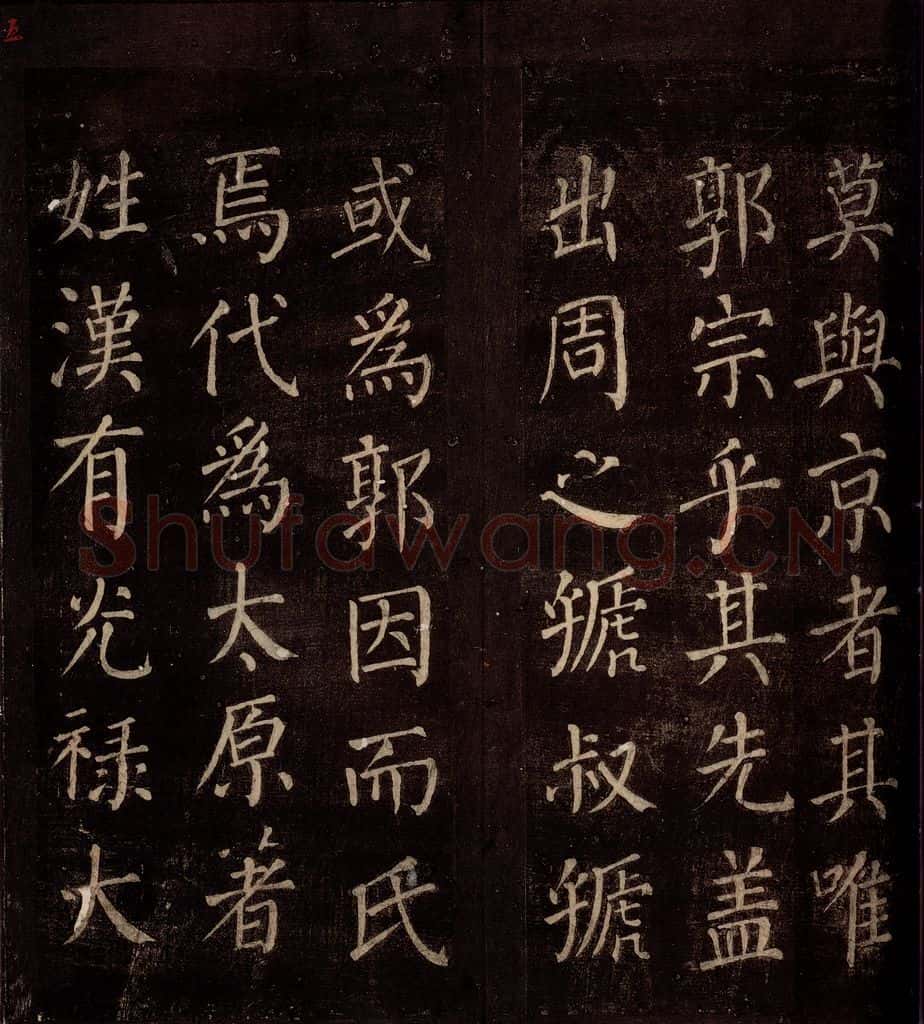 莫與京者其唯
郭宗乎其先盖
出周之虢叔虢
或爲郭因而氏
焉代爲太原著
姓漢有光禄大
五
Shufawang.CN